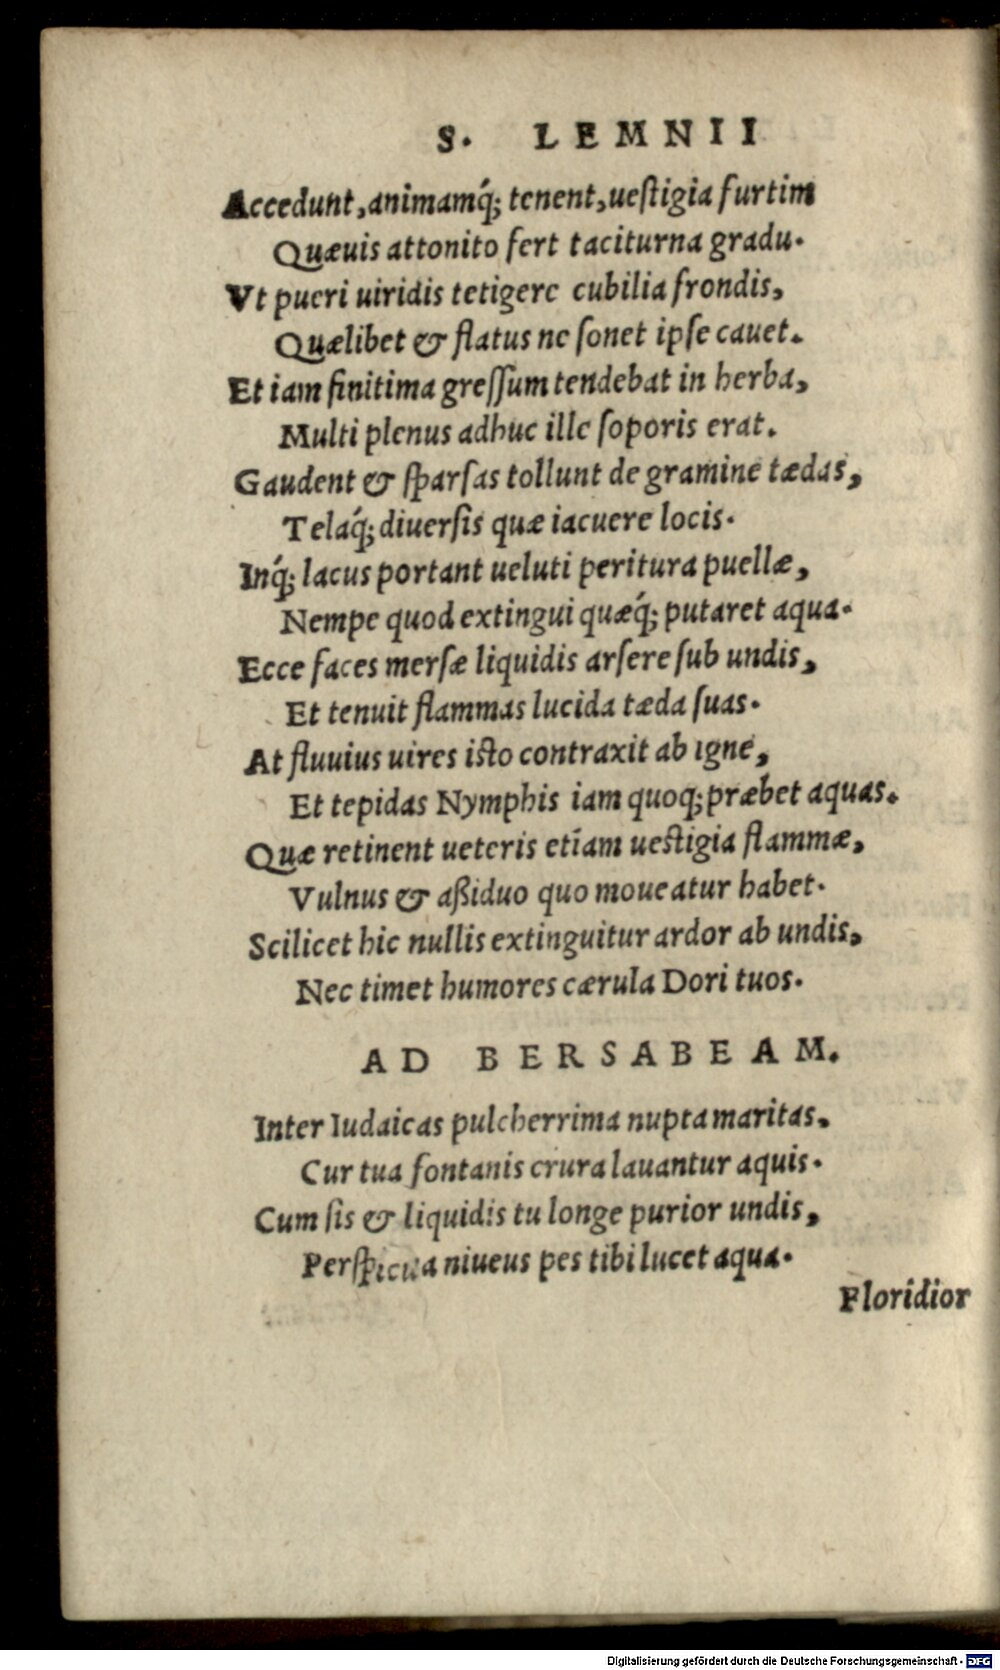 S. LEMNII
Accedunt, animamq́; tenent, ueſtigia furtim
Quæuis attonito fert taciturna gradu.
Vt pueri uiridis tetigere cubilia frondis,
Quælibet & flatus ne ſonet ipſe cauet.
Et iam finitima greſſum tendebat in herba,
Multi plenus adhuc ille ſoporis erat.
Gaudent & ſparſas tollunt de gramine tædas,
Telaq́; diuerſis quæ iacuere locis.
Inq́; lacus portant ueluti peritura puellæ,
Nempe quod extingui quæq́; putaret aqua.
Ecce faces merſæ liquidis arſere ſub undis,
Et tenuit flammas lucida tæda ſuas.
At fluuius uires iſto contraxit ab igne,
Et tepidas Nymphis iam quoq; præbet aquas.
Quæ retinent ueteris etiam ueſtigia flammæ,
Vulnus & aßiduo quo moueatur habet.
Scilicet hic nullis extinguitur ardor ab undis,
Nec timet humores cærula Dori tuos.
AD BERSABEAM.
Inter Iudaicas pulcherrima nupta maritas.
Cur tua fontanis crura lauantur aquis.
Cum ſis & liquidis tu longe purior undis,
Perſpicua niueus pes tibi lucet aqua.
Floridior
Digitalisierung gefördert durch die Deutsche Forschungsgemeinschaft - DFG